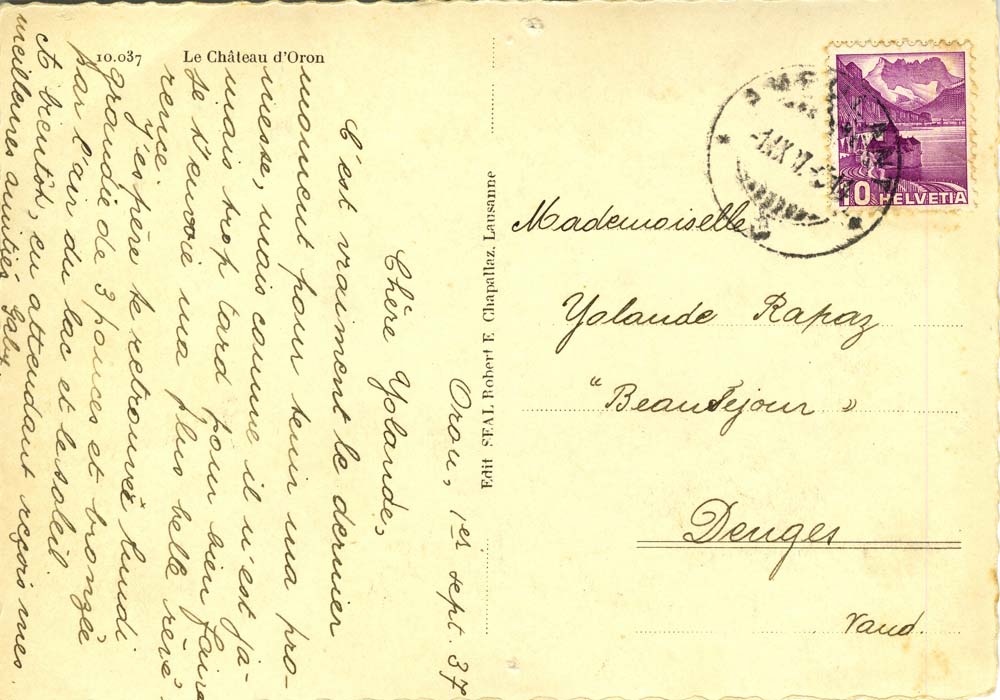 10.037 Le Château d'Oron
Oron, 1er sept 37
Chère Yolande,
C'est vraiment le dernier
moment pour tenir ma pro-
messe, mais comme il n'est ja-
mais trop tard pour bien faire
je t'envoie ma plus belle révé-
rence.
J'espère te retrouver lundi
grandie de 3 pouces et bronzée
par l'air du lac et le soleil.
A bientôt, en attendant reçois mes
meilleures amitiés Gaby.
Edit SEAL Robert E. Chapallaz, Lausanne
10 HELVETIA
Mademoiselle
Yolande Rapaz
"Beau Séjour"
Denges
Vaud.